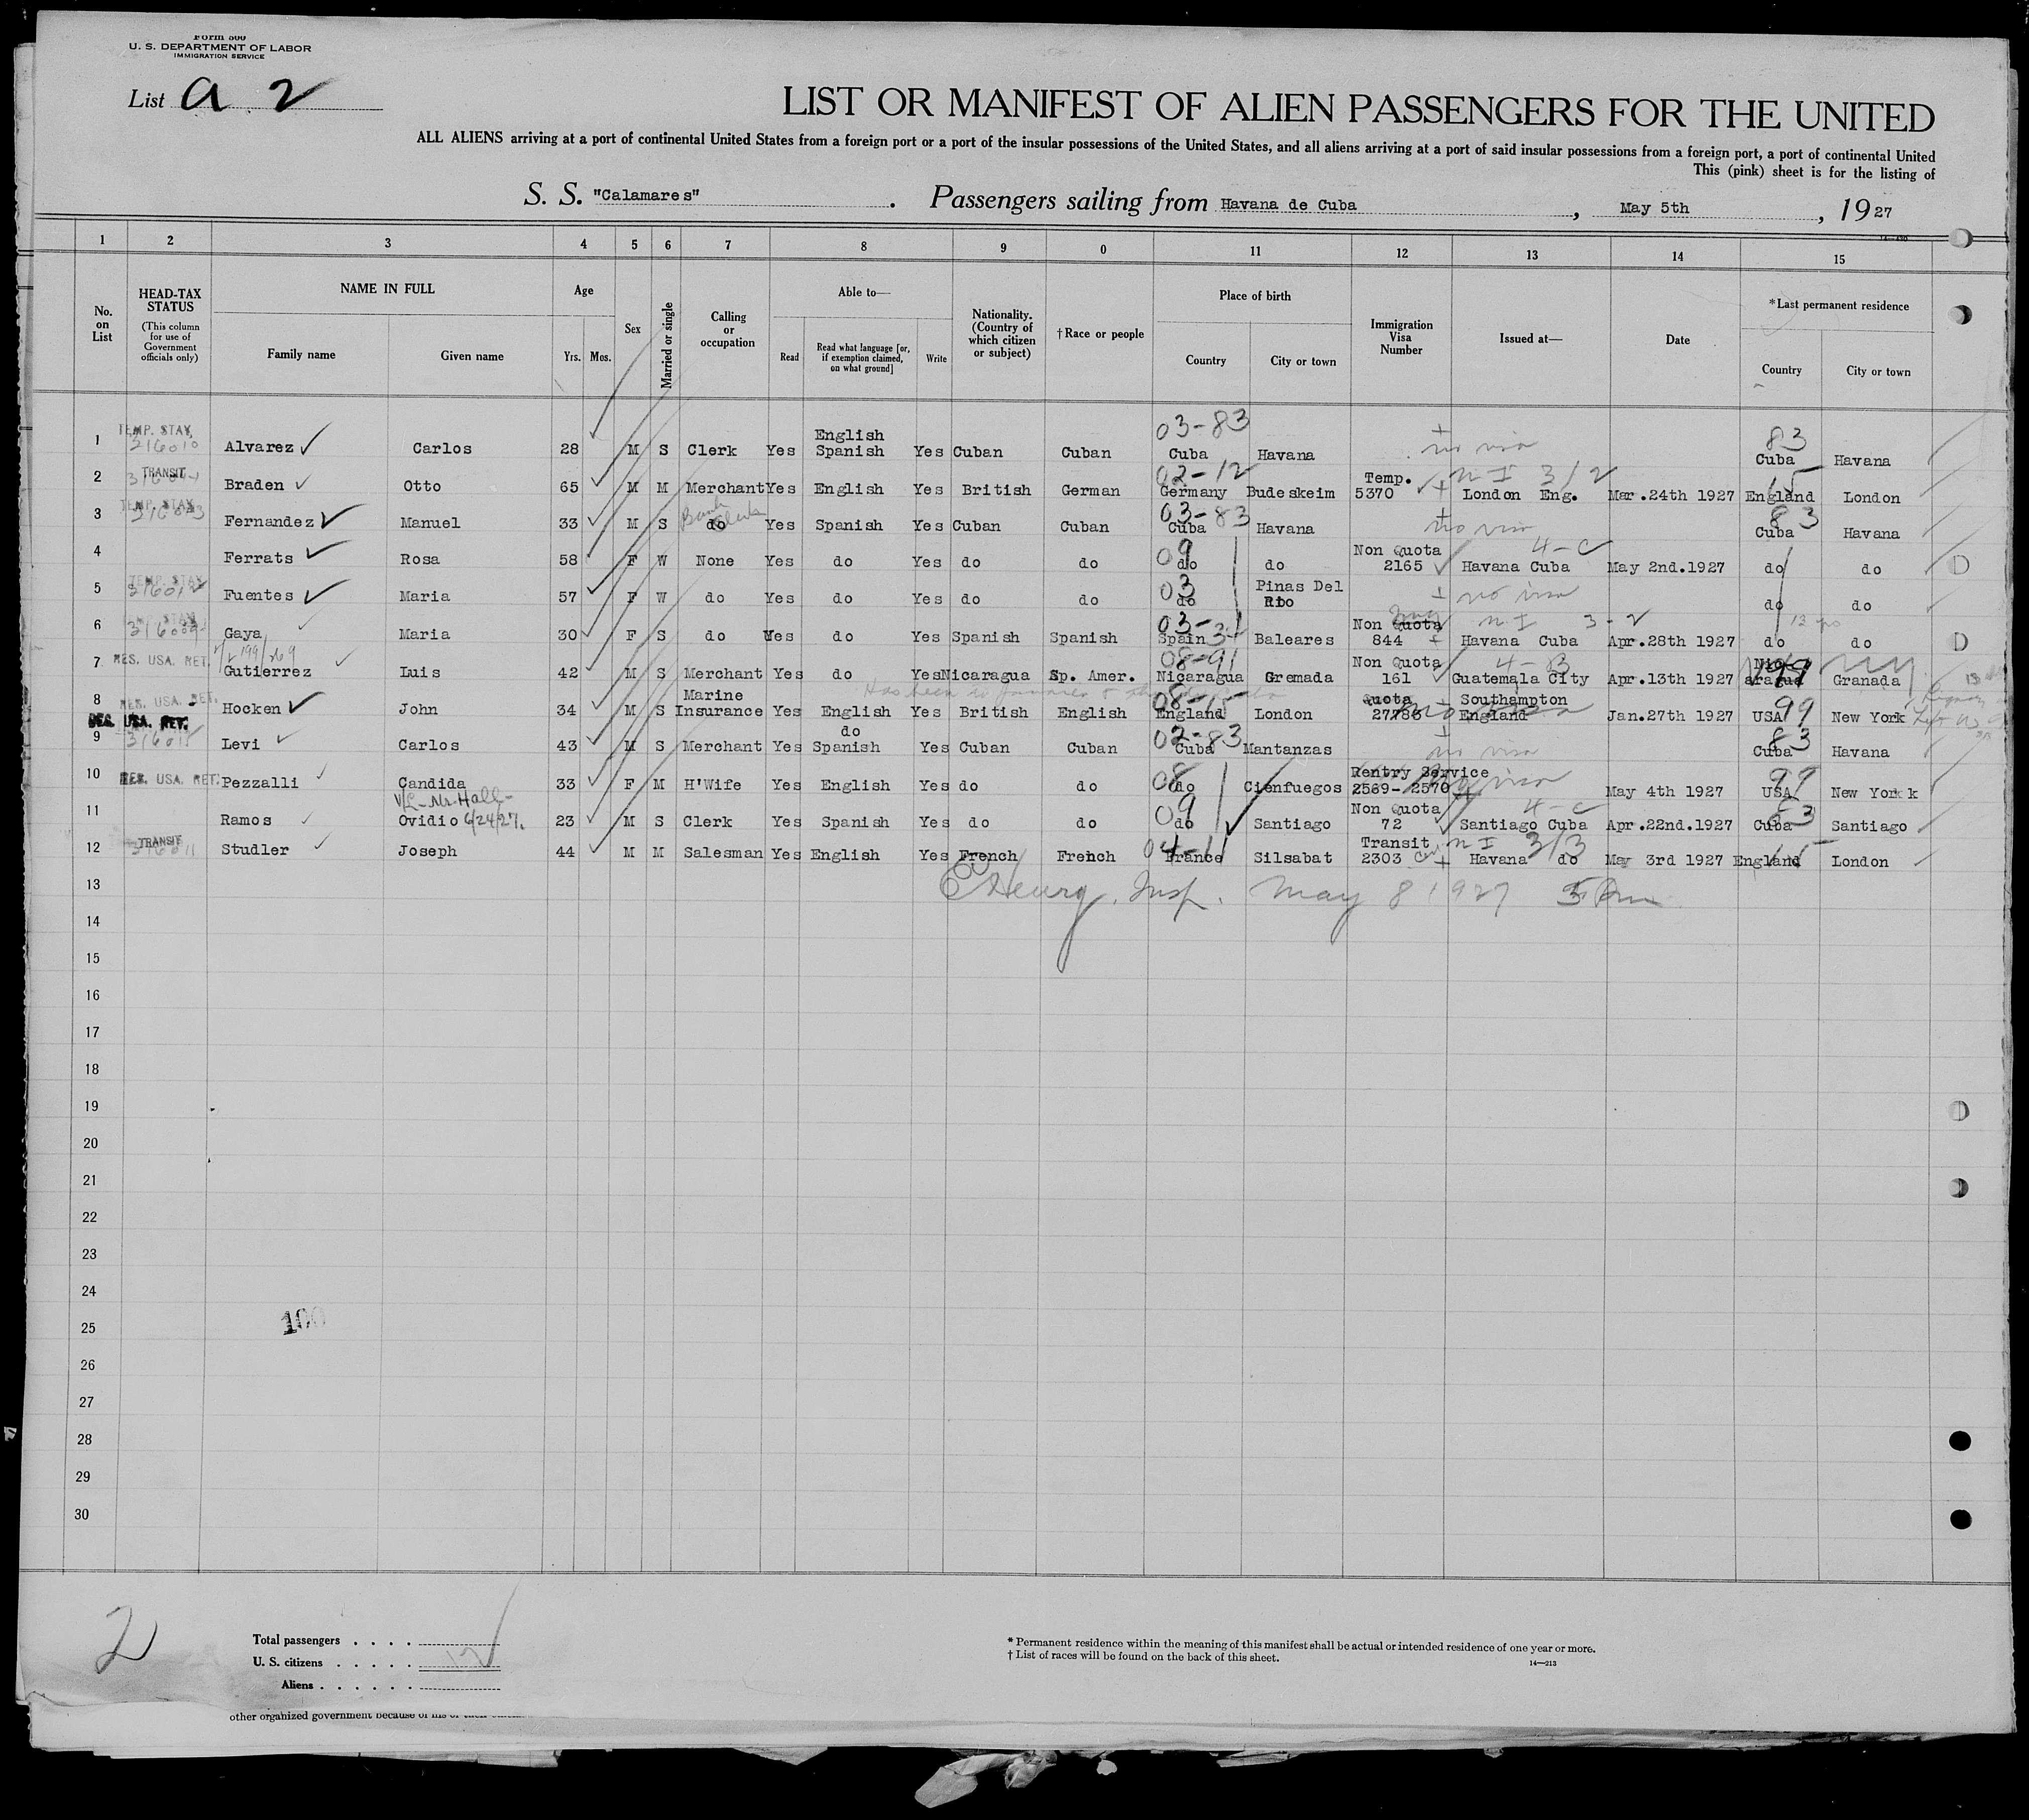 Form 500
U. S. DEPARTMENT OF LABOR
IMMIGRATION SERVICE
List a 2
LIST OR MANIFEST OF ALIEN PASSENGERS FOR THE UNITED
ALL ALIENS arriving at a port of continental United States from a foreign port or a port of the insular possessions of the United States, and all aliens arriving at a port of said insular possessions from a foreign port, a port of continental United
This (pink) sheet is for the listing of
S. S. "Calamares". Passengers sailing from Havana de Cuba, May 5th, 1927
1 2 3 4 5 6 7 8 9 0 11 12 13 14 15
No. on List
HEAD-TAX STATUS (This column for use of Government officials only)
NAME IN FULL Family name Given name
Age Yrs. Mos.
Sex
Married or single
Calling or occupation
Able to— Read Read what language [or, if exemption claimed, on what ground] Write
Nationality. (Country of which citizen or subject)
† Race or people
Place of birth Country City or town
Immigration Visa Number
Issued at—
Date
* Last permanent residence Country City or town
1 TEMP. STAY 316010 Alvarez Carlos 28 M S Clerk Yes English Spanish Yes Cuban Cuban 03-83 Cuba Havana no visa 83 Cuba Havana
2 TRANSIT Braden Otto 65 M M Merchant Yes English Yes British German 02-12 Germany Budeskeim Temp. 5370 n I 3/2 London Eng. Mar.24th 1927 15 England London
3 TEMP. STAY Fernandez Manuel 33 M S do Bank Clerk Yes Spanish Yes Cuban Cuban 03-83 Cuba Havana no visa 83 Cuba Havana
4 Ferrats Rosa 58 F W None Yes do Yes do do 09 do do Non Quota 2165 4-C Havana Cuba May 2nd.1927 do do
5 TEMP. STAY 316012 Fuentes Maria 57 F W do Yes do Yes do do 03 do Pinas Del Rio no visa do do
6 STAY Gaya Maria 30 F S do Yes do Yes Spanish Spanish 03-31 Spain Baleares Non Quota 844 n I 3-2 Havana Cuba Apr.28th 1927 do do
7 RES. USA. RET. Gutierrez Luis 42 M S Merchant Yes do Yes Nicaragua Sp. Amer. 08-91 Nicaragua Gremada Non Quota 161 4-B Guatemala City Apr.13th 1927 Nicaragua 99 Granada NY
8 RES. USA. RET. Hocken John 34 M S Marine Insurance Yes English Yes British English 08-15 England London Quota 27786 Southampton England Jan.27th 1927 99 USA New York
9 RES. USA. RET. Levi Carlos 43 M S Merchant Yes do Spanish Yes Cuban Cuban 02-83 Cuba Mantanzas no visa 83 Cuba Havana
10 RES. USA. RET. Pezzalli Candida 33 F M H'Wife Yes English Yes do do 08 do Cienfuegos Rentry Service 2569-2570 no visa May 4th 1927 99 USA New York k
V/L - Mr. Hall-
11 Ramos Ovidio 6/24/27. 23 M S Clerk Yes Spanish Yes do do 09 do Santiago Non Quota 72 4-C Santiago Cuba Apr.22nd.1927 83 Cuba Santiago
12 TRANSIT 316011 Studler Joseph 44 M M Salesman Yes English Yes French French 04-11 France Silsabat Transit 2303 n I 3/3 Havana do May 3rd 1927 15 England London
13 Insp. May 8 1927 5 Pm
14
15
16
17
18
19
20
21
22
23
24
25 100
26
27
28
29
30
2
Total passengers . . . .
U. S. citizens . . . . . 12
Aliens . . . . . .
* Permanent residence within the meaning of this manifest shall be actual or intended residence of one year or more.
† List of races will be found on the back of this sheet.
14—213
other organized government because of his or their